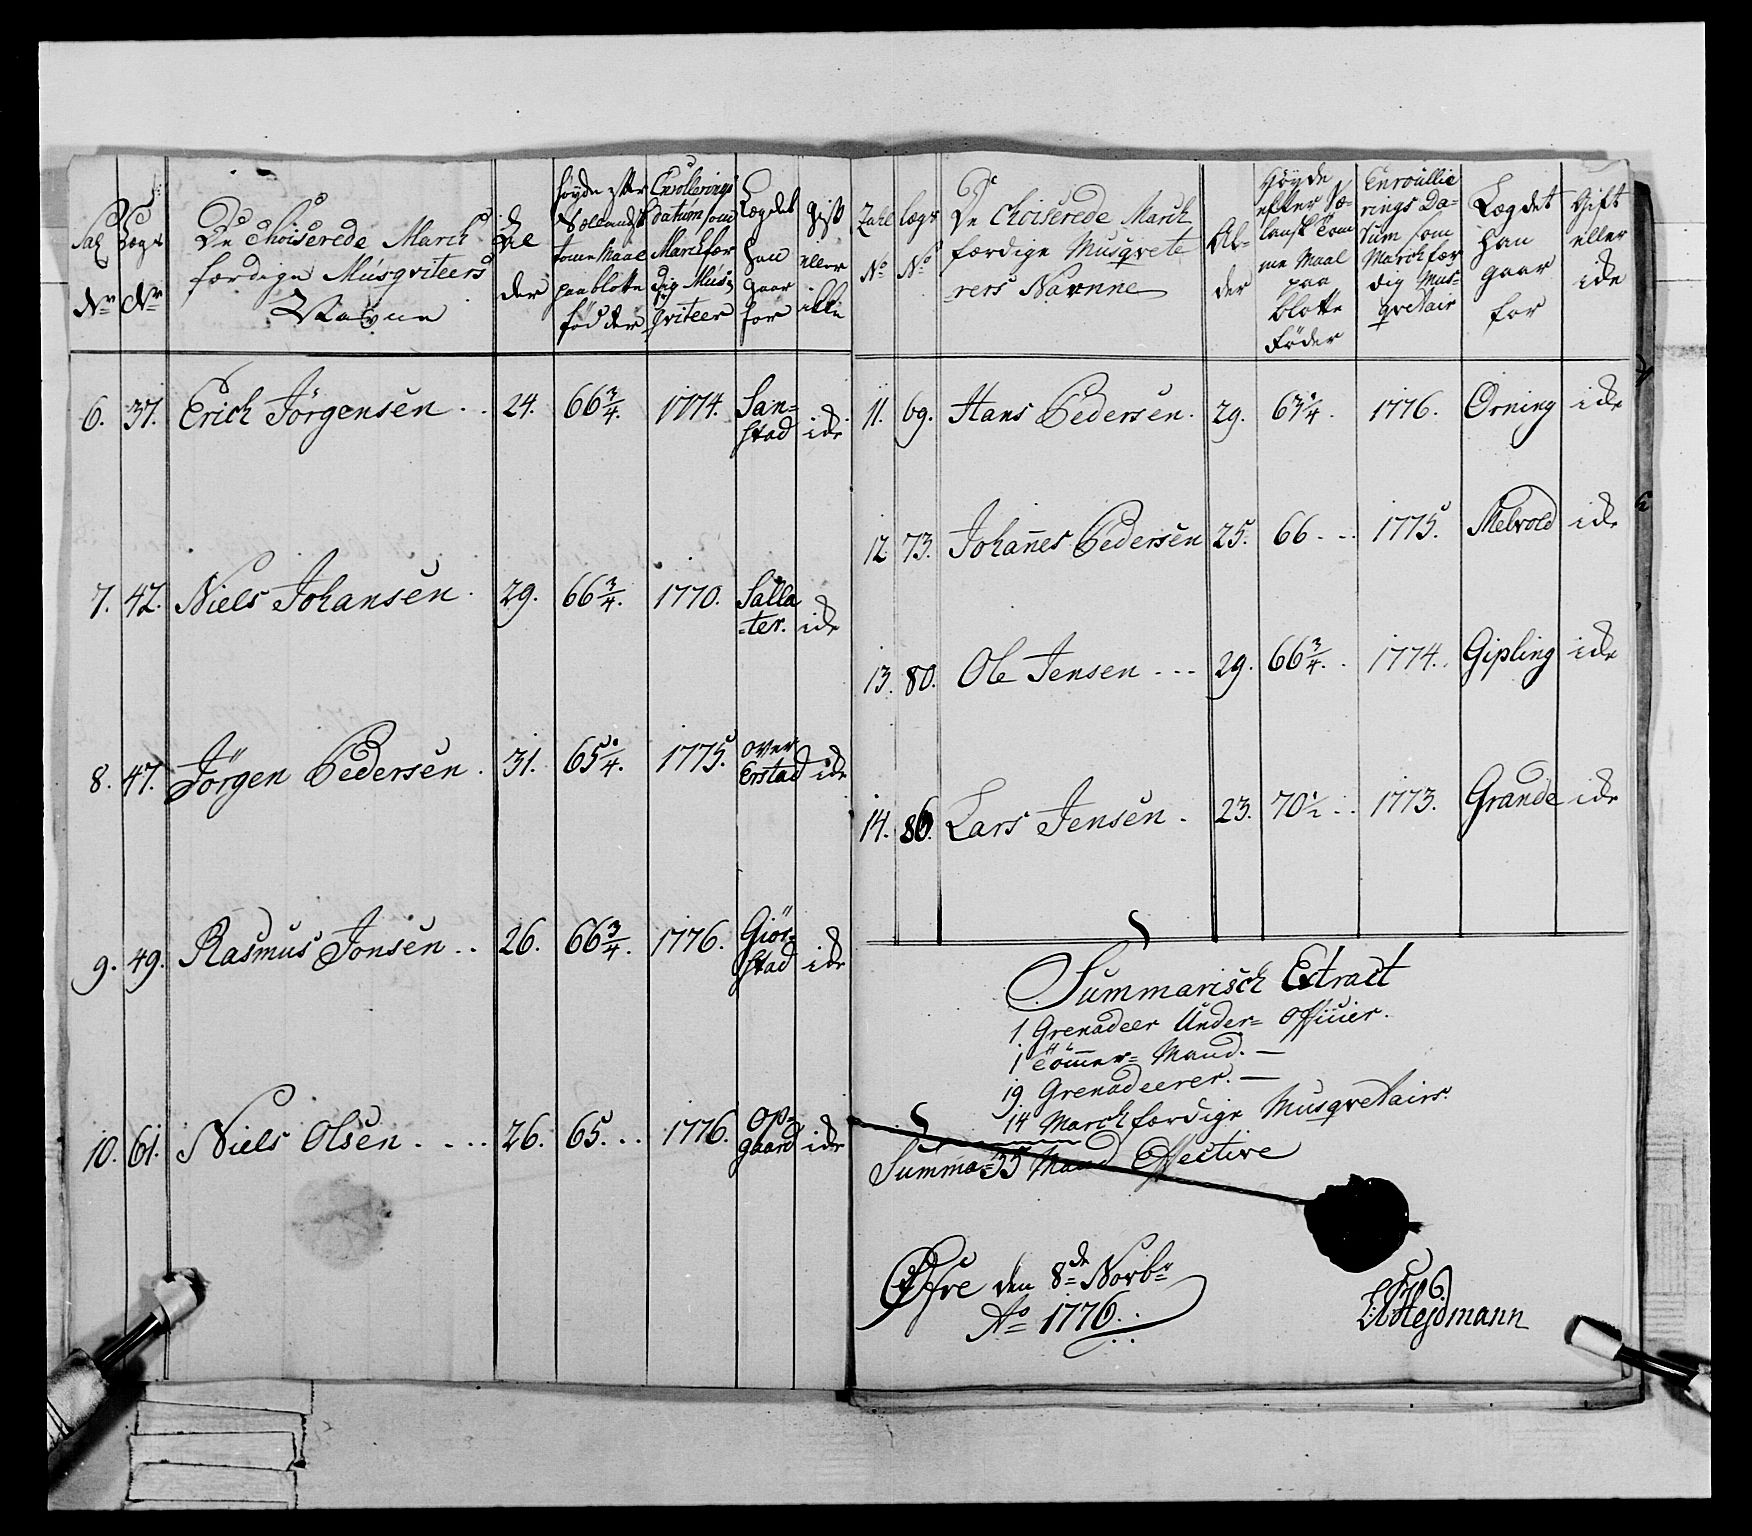 De Choiserede March
færdige Musqviteers
Navne
Al
der
Høyde efter
Sælandsk
tomme Maal
paa blotte
fødder
Enrollerings
datum som
March fær
dig Mus
qviteer
Lægdet
han
gaar
for
gift
eller
ikke
6. 37. Erich Jörgensen . . 24. 66 3/4. 1774. San=
stad ide
7. 42. Niels Johansen . 29. 66 3/4. 1770. Salla
=ter. ide
8. 47. Jörgen Pedersen . 31. 65 1/4. 1775. over
Erstad ide
9. 49. Rasmus Jonsen . . 26. 66 3/4. 1776. Giör=
stad ide
10. 61. Niels Olsen . . . . 26. 65. . . 1776. Op=
gaard ide
Zahl
No
lægs
No
De Choiserede March
færdige Musqvete
rers Navnne
Al=
der
Höyde
efter Sæ=
lansk Tom
me Maal
paa
blotte
Föder
Enroullie
rings Da=
tum som
March fær
dig Mus=
qvetair
Lægdet
han
gaar
for
Gift
eller
ide
11. 69. Hans Pedersen . 29. 63 1/4. 1776. Orning ide
12. 73. Johanes Pedersen 25. 66. . . 1775. Melvold ide
13. 80. Ole Jensen . . . 29. 66 3/4. . 1774. . Gipling ide
14. 86. Lars Jensen . 23. 70 1/2 . . 1773. Grande ide
Summarisch Extract
1. Grenadeer Under= Officier.
1 Tömer= Mand. —
19 Grenadeerer. —
14 March færdige Musqvetairs.
Summa= 35 Mand Effective
Øfre den 8de Novbr
Ao 1776.